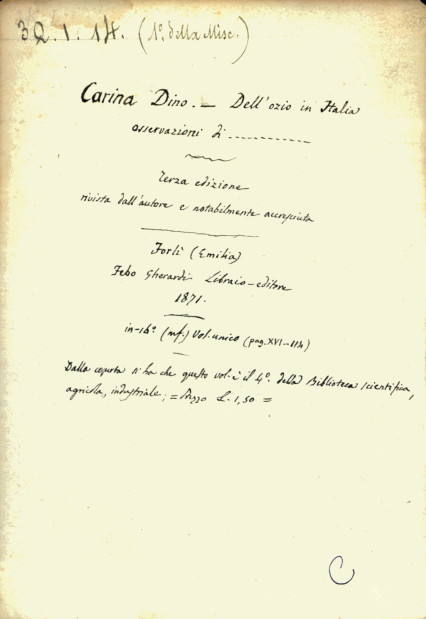 32.1.14. (1º della Misc.)
Carina Dino. — Dell'ozio in Italia
osservazioni di ------------
Terza edizione
rivista dall'autore e notabilmente accresciuta
Forlì (Emilia)
Febo Gherardi Libraio-editore
1871.
in-16º (mf.) Vol. unico (pag. XVI-114)
Dalla coperta s'ha che questo vol. è il 4º. della Biblioteca scientifica,
agricola, industriale; = Prezzo L. 1,50 =
C